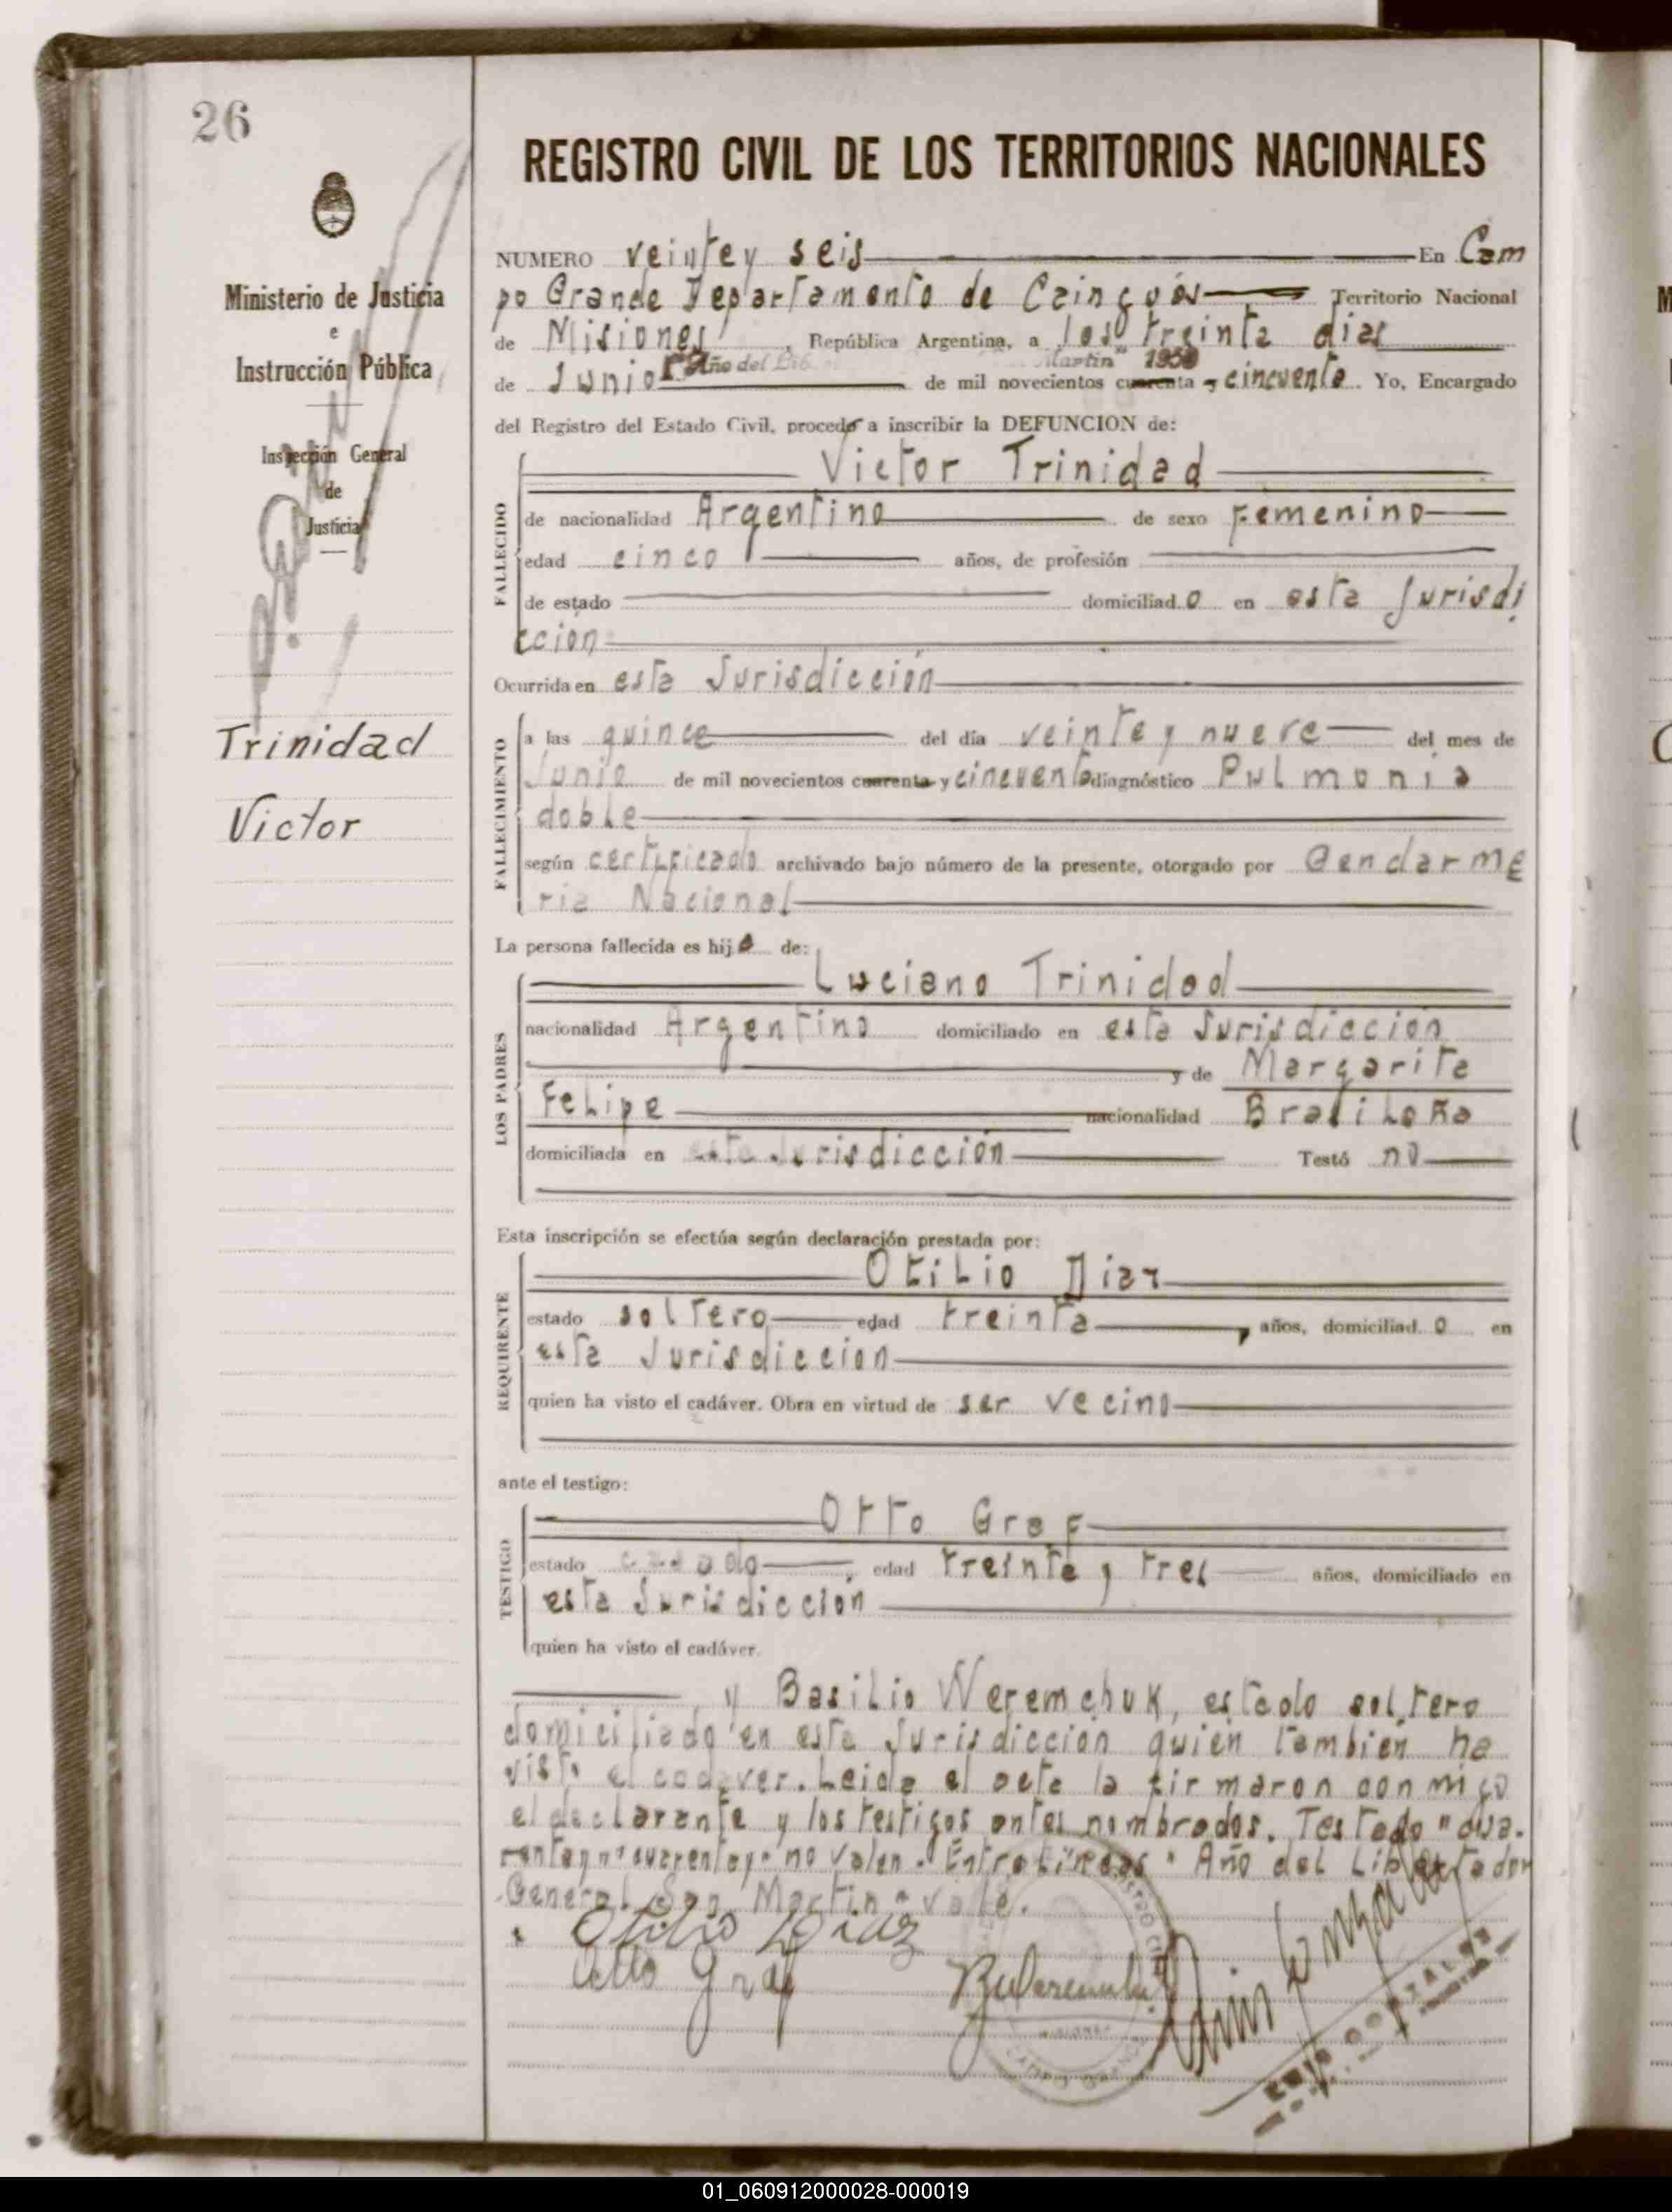 26
REGISTRO CIVIL DE LOS TERRITORIOS NACIONALES
Ministerio de Justicia
e
Instrucción Pública
Inspección General
de
Justicia
Trinidad
Victor
NUMERO veinte y seis En Cam
po Grande Departamento de Cainguás Territorio Nacional
de Misiones, República Argentina, a los treinta dias
"Año del Lib Martin" 1950
de Junio de mil novecientos cuarenta y cincuenta. Yo, Encargado
del Registro del Estado Civil, procedo a inscribir la DEFUNCION de:
FALLECIDO
Victor Trinidad
de nacionalidad Argentino de sexo Femenino
edad cinco años, de profesión
de estado domiciliado en esta Jurisdi
cción
Ocurrida en esta Jurisdicción
FALLECIMIENTO
a las quince del día veinte y nueve del mes de
Junio de mil novecientos cuarenta y cincuenta diagnóstico Pulmonia
doble
según certificado archivado bajo número de la presente, otorgado por Gendarme
ria Nacional
La persona fallecida es hijo de:
LOS PADRES
Luciano Trinidad
nacionalidad Argentino domiciliado en esta Jurisdicción
y de Margarita
Felipe nacionalidad Brasileña
domiciliada en esta Jurisdicción Testó no
Esta inscripción se efectúa según declaración prestada por:
REQUIRENTE
Otilio Diaz
estado soltero edad treinta, años, domiciliado en
esta Jurisdiccion
quien ha visto el cadáver. Obra en virtud de ser vecino
ante el testigo:
TESTIGO
Otto Graf
estado casado, edad treinta y tres años, domiciliado en
esta Jurisdicción
quien ha visto el cadáver.
y Basilio Weremchuk, estado soltero
domiciliado en esta Jurisdiccion quién también ha
visto el cadaver. Leida el acta la firmaron conmigo
el declarante y los testigos antes nombrados. Testado "cua-
renta y" "cuarenta y" no valen. Entrelíneas "Año del Libertador
General San Martin" vale.
Otilio Diaz
Otto Graf
REGISTRO CIVIL
MISIONES
CAMPO GRANDE
GONZALEZ
01_060912000028-000019